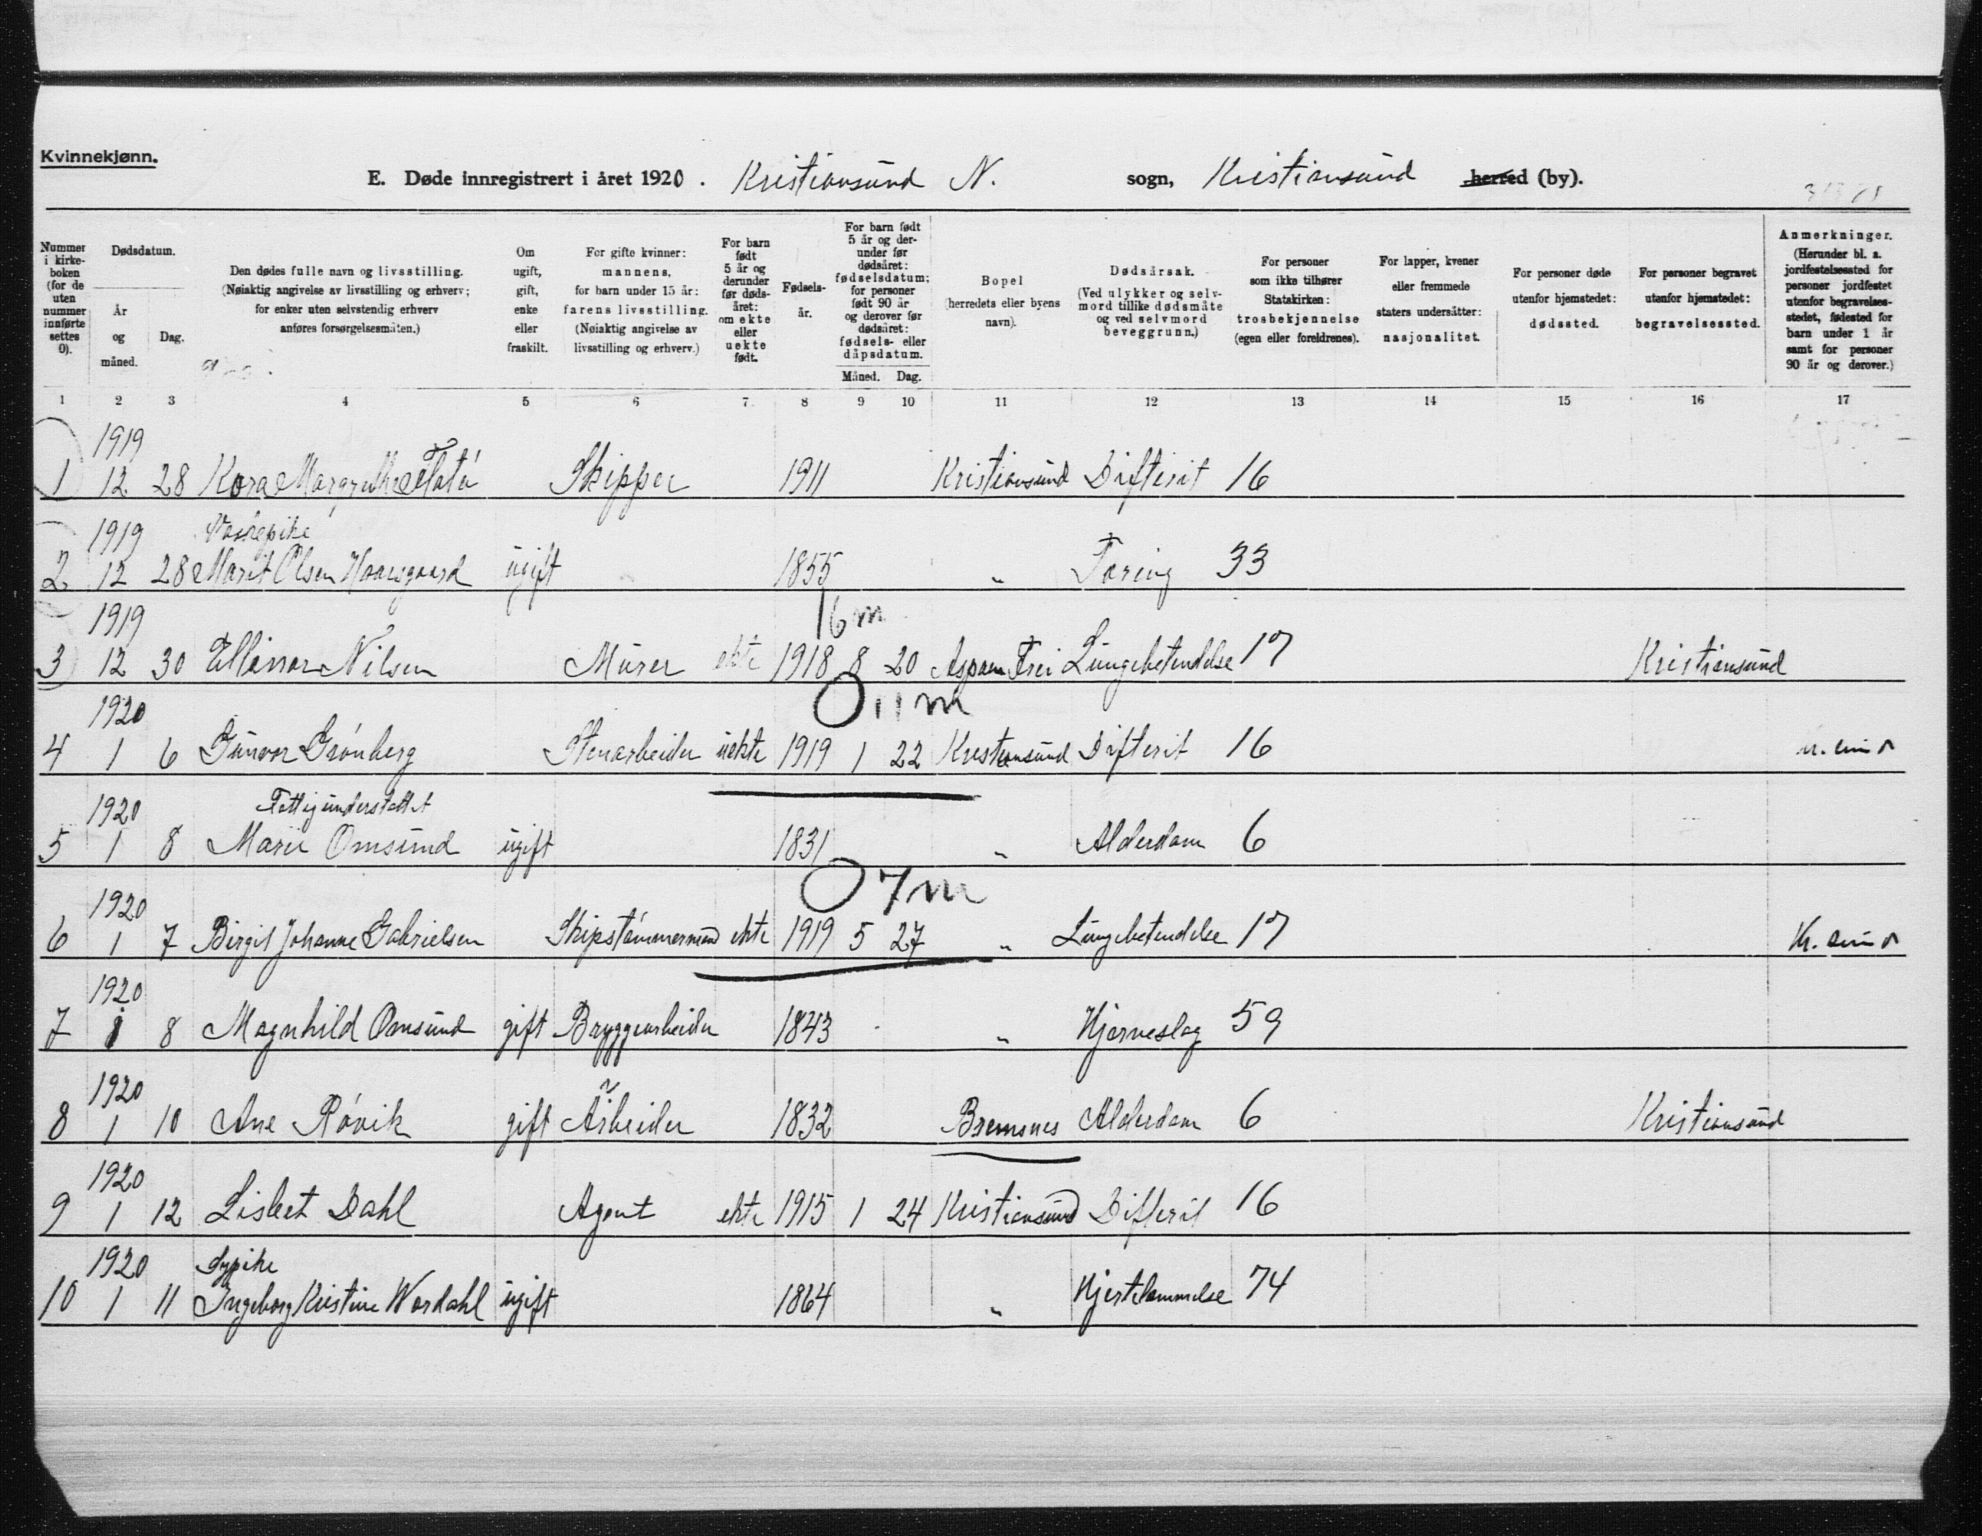 Kvinnekjønn.
E. Døde innregistrert i året 1920. Kristiansund N. sogn, Kristiansund herred (by).
Nummer i kirkeboken (for de uten nummer innførte settes 0).
Dødsdatum.
År og måned.
Dag.
Den dødes fulle navn og livsstilling. (Nøiaktig angivelse av livsstilling og erhverv; for enker uten selvstendig erhverv anføres forsørgelsesmåten.)
Om ugift, gift, enke eller fraskilt.
For gifte kvinner: mannens, for barn under 15 år: farens livsstilling. (Nøiaktig angivelse av livsstilling og erhverv.)
For barn født 5 år og derunder før dødsåret: om ekte eller uekte født.
Fødselsår.
For barn født 5 år og derunder før dødsåret: fødselsdatum; for personer født 90 år og derover før dødsåret: fødsels- eller dåpsdatum.
Måned. Dag.
Bopel (herredets eller byens navn).
Dødsårsak. (Ved ulykker og selvmord tillike dødsmåte og ved selvmord beveggrunn.)
For personer som ikke tilhører Statskirken: trosbekjennelse (egen eller foreldrenes).
For lapper, kvener eller fremmede staters undersåtter: nasjonalitet.
For personer døde utenfor hjemstedet: dødssted.
For personer begravet utenfor hjemstedet: begravelsessted.
Anmerkninger. (Herunder bl. a. jordfestelsessted for personer jordfestet utenfor begravelsesstedet, fødested for barn under 1 år samt for personer 90 år og derover.)
1 2 3 4 5 6 7 8 9 10 11 12 13 14 15 16 17
1919
1 12 28 Kora Margrethe Flatø Skipper 1911 Kristiansund Difterit 16
1919
2 12 28 Marit Olsen ugift 1855 " Tæring 33
16 m
1919
3 12 30 Ellinor Nilsen Murer ekte 1918 8 20 Frei Lungebetendelse 17 Kristiansund
0 11 m
1920
4 1 6 Gunvor Grønberg Stenarbeider uekte 1919 1 22 Kristiansund Difterit 16
1920 Fattigunderstøttet
5 1 8 Marie Omsund ugift 1831 " Alderdom 6
0 7 m
1920
6 1 7 Birgit Johanne Gabrielsen Skipstømmermand ekte 1919 5 27 " Lungebetendelse 17 Kr. sund
1920
7 1 8 Magnhild Omsund gift Bryggearbeider 1843 " Hjerneslag 59
1920
8 1 10 Ane Røvik gift Arbeider 1832 Bremsnes Alderdom 6 Kristiansund
1920
9 1 12 Lisbet Dahl Agent ekte 1915 1 24 Kristiansund Difterit 16
1920 Sypike
10 1 11 Ingeborg Kristine Wordahl ugift 1864 " Hjertelammelse 74